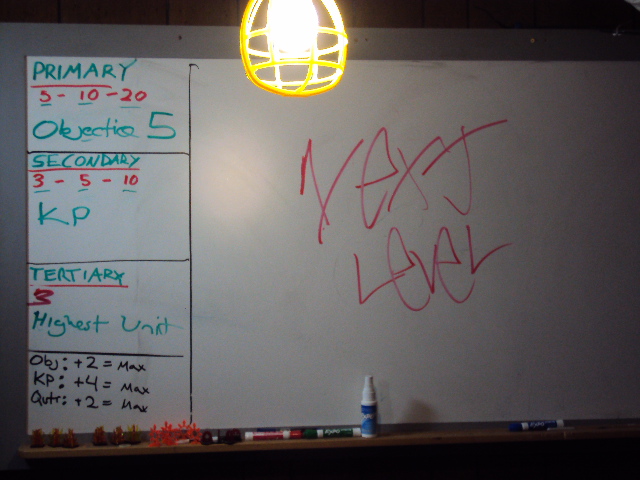 PRIMARY
5 - 10 - 20
Objective 5
SECONDARY
3 - 5 - 10
KP
TERTIARY
3
Highest Unit
Obj: +2 = Max
KP: +4 = Max
Qutr: +2 = Max
NEXT
LEVEL
EXPO